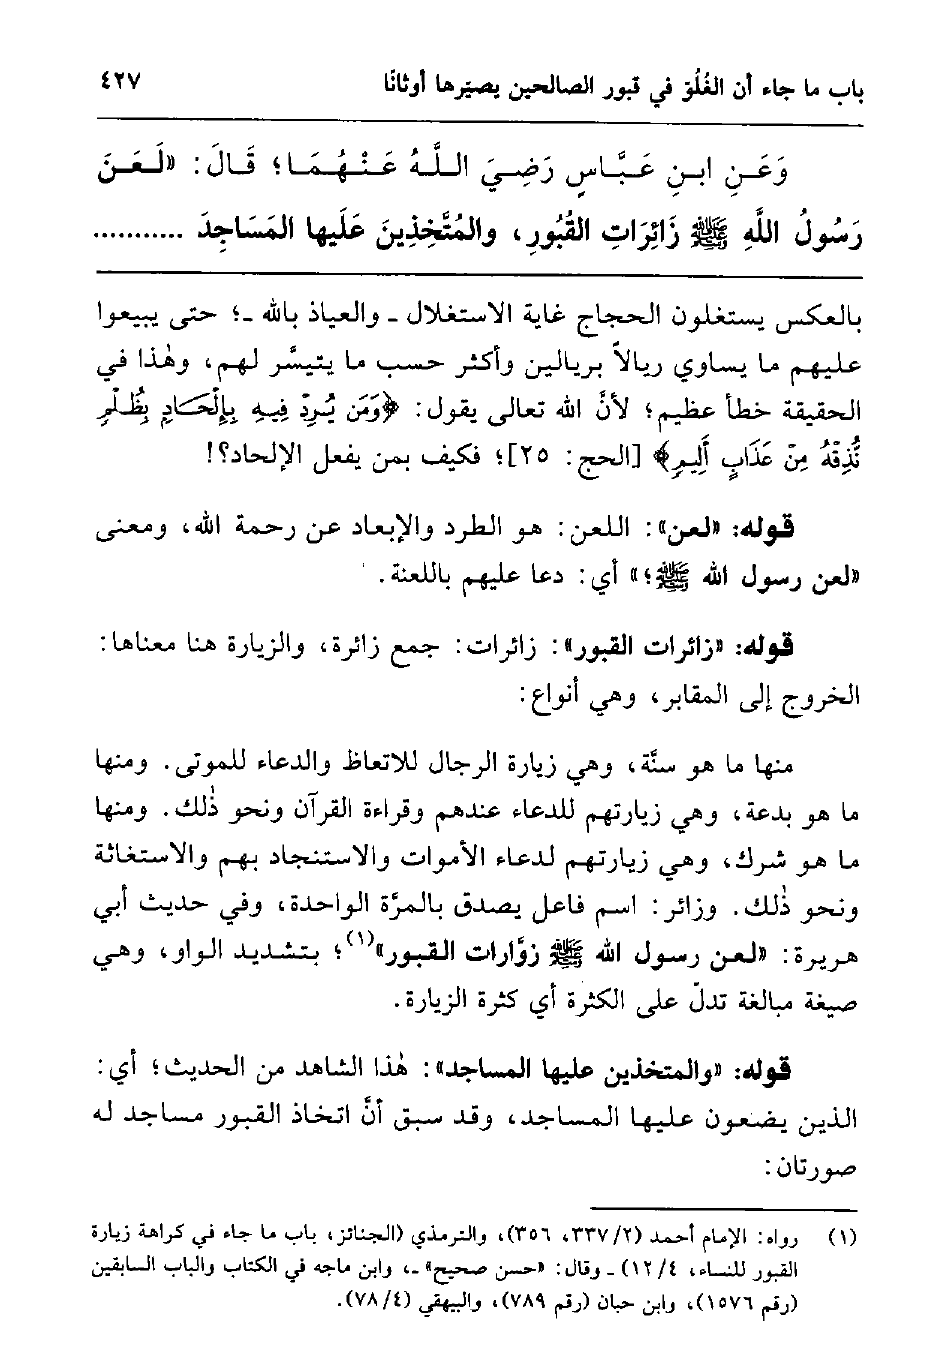 باب ما جاء أن الغُلُو في قبور الصالحين يصيّرها أوثانًا ٤٢٧
وَعَنِ ابنِ عَبَّاسٍ رَضِيَ اللَّهُ عَنْهُمَا؛ قَالَ: «لَعَنَ
رَسُولُ اللَّهِ ﷺ زَائِرَاتِ القُبُورِ، والمُتَّخِذِينَ عَلَيها المَسَاجِدَ ...........
بالعكس يستغلون الحجاج غاية الاستغلال ـ والعياذ بالله ـ؛ حتى يبيعوا
عليهم ما يساوي ريالاً بريالين وأكثر حسب ما يتيسَّر لهم، وهٰذا في
الحقيقة خطأ عظيم؛ لأنَّ الله تعالى يقول: ﴿وَمَن يُرِدْ فِيهِ بِإِلْحَادٍ بِظُلْمٍ
نُّذِقْهُ مِنْ عَذَابٍ أَلِيمٍ﴾ [الحج: ٢٥]؛ فكيف بمن يفعل الإلحاد؟!
قوله: «لعن»: اللعن: هو الطرد والإبعاد عن رحمة الله، ومعنى
«لعن رسول الله ﷺ؛» أي: دعا عليهم باللعنة.
قوله: «زائرات القبور»: زائرات: جمع زائرة، والزيارة هنا معناها:
الخروج إلى المقابر، وهي أنواع:
منها ما هو سنَّة، وهي زيارة الرجال للاتعاظ والدعاء للموتى. ومنها
ما هو بدعة، وهي زيارتهم للدعاء عندهم وقراءة القرآن ونحو ذٰلك. ومنها
ما هو شرك، وهي زيارتهم لدعاء الأموات والاستنجاد بهم والاستغاثة
ونحو ذٰلك. وزائر: اسم فاعل يصدق بالمرَّة الواحدة، وفي حديث أبي
هريرة: «لعن رسول الله ﷺ زوَّارات القبور»(١)؛ بتشديد الواو، وهي
صيغة مبالغة تدلّ على الكثرة أي كثرة الزيارة.
قوله: «والمتخذين عليها المساجد»: هٰذا الشاهد من الحديث؛ أي:
الذين يضعون عليها المساجد، وقد سبق أنَّ اتخاذ القبور مساجد له
صورتان:
(١) رواه: الإمام أحمد (٢/٣٣٧، ٣٥٦)، والترمذي (الجنائز، باب ما جاء في كراهة زيارة
القبور للنساء، ٤/١٢) ـ وقال: «حسن صحيح» ـ، وابن ماجه في الكتاب والباب السابقين
(رقم ١٥٧٦)، وابن حبان (رقم ٧٨٩)، والبيهقي (٤/٧٨).